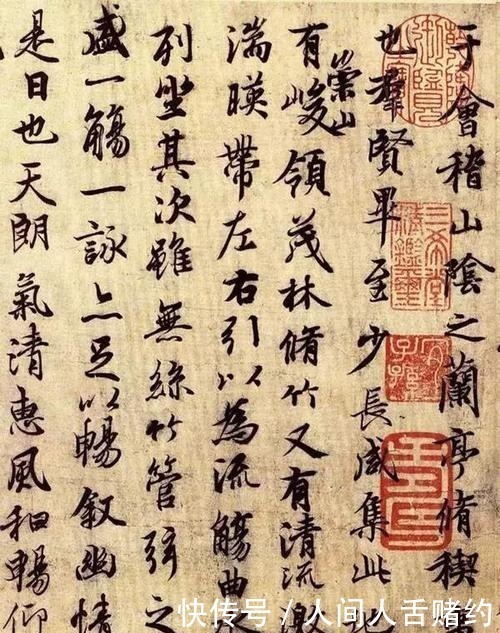 于會稽山陰之蘭亭脩禊
也羣賢畢至少長咸集此
有崇山峻領茂林脩竹又有清流激
湍暎帶左右引以為流觴曲
列坐其次雖無絲竹管弦之
盛一觴一詠亦足以暢敘幽情
是日也天朗氣清惠風和暢仰
三希堂精鑑璽
宜子孫
快传号/人间人舌赌约